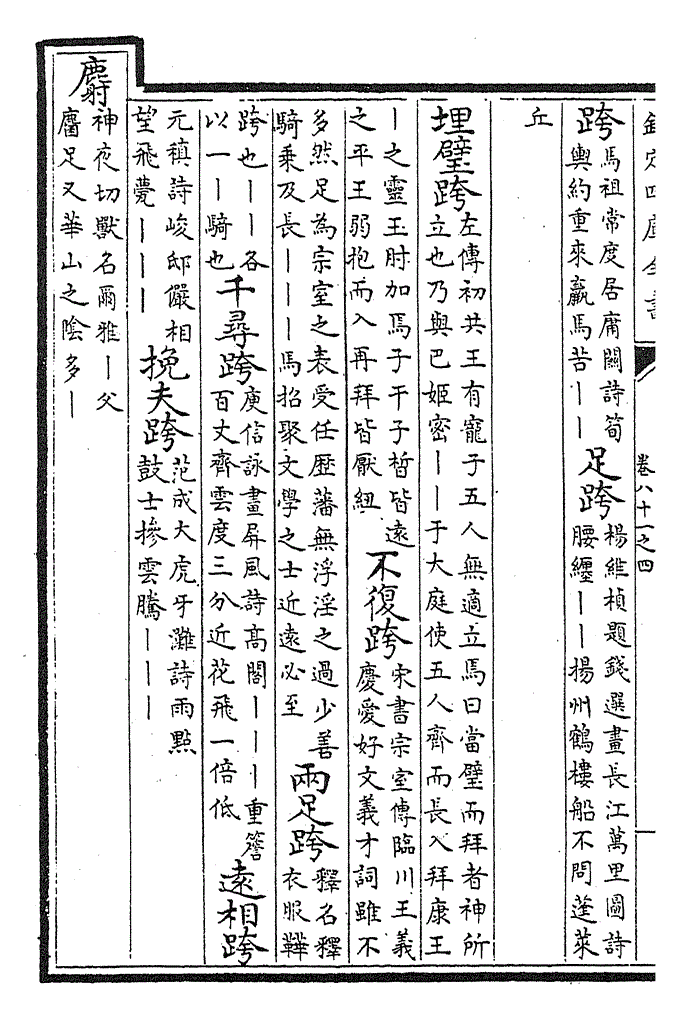 欽定四庫全書
卷八十一之四
跨馬祖常度居庸關詩筍輿約重來羸馬苦丨丨足跨楊維楨題錢選畫長江萬里圖詩腰纏丨丨揚州鶴樓船不問蓬萊
丘
埋璧跨左傳初共王有寵子五人無適立焉曰當璧而拜者神所立也乃與巴姬密丨丨于大庭使五人齊而長入拜康王
丨之靈王肘加焉子干子晳皆遠之平王弱抱而入再拜皆厭紐不復跨宋書宗室傳臨川王義慶愛好文義才詞雖不
多然足為宗室之表受任歷藩無浮淫之過少善騎乗及長丨丨丨馬招聚文學之士近遠必至兩足跨釋名釋衣服鞾
跨也丨丨各以一丨騎也千尋跨庾信詠畫屏風詩高閣丨丨丨重簷百丈齊雲度三分近花飛一倍低遠相跨
元稹詩峻邸儼相望飛甍丨丨丨挽夫跨范成大虎牙灘詩雨點鼓士摻雲騰丨丨丨
麝神夜切獸名爾雅丨父麕足又華山之陰多丨